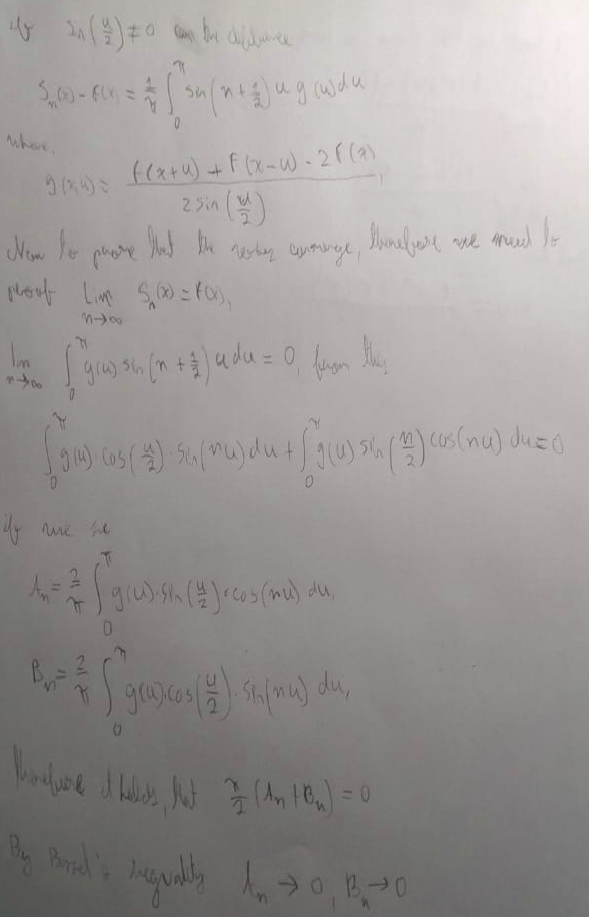 if sin(u/2) ≠ 0 can the difference
S_n(x) - f(x) = 1/π ∫_0^π sin(n + 1/2) u g(u) du
where,
g(x,u) = (f(x+u) + f(x-u) - 2f(x)) / (2 sin(u/2)),
Now to prove that the converge, therefore we need to
proof lim_{n→∞} S_n(x) = f(x),
lim_{n→∞} ∫_0^π g(u) sin(n + 1/2) u du = 0, from this
∫_0^π g(u) · cos(u/2) · sin(nu) du + ∫_0^π g(u) sin(n/2) cos(nu) du = 0
if we
A_n = 2/π ∫_0^π g(u) · sin(u/2) · cos(nu) du,
B_n = 2/π ∫_0^π g(u) · cos(u/2) · sin(nu) du,
therefore it holds, that π/2 (A_n + B_n) = 0
By Bessel's inequality A_n → 0, B_n → 0